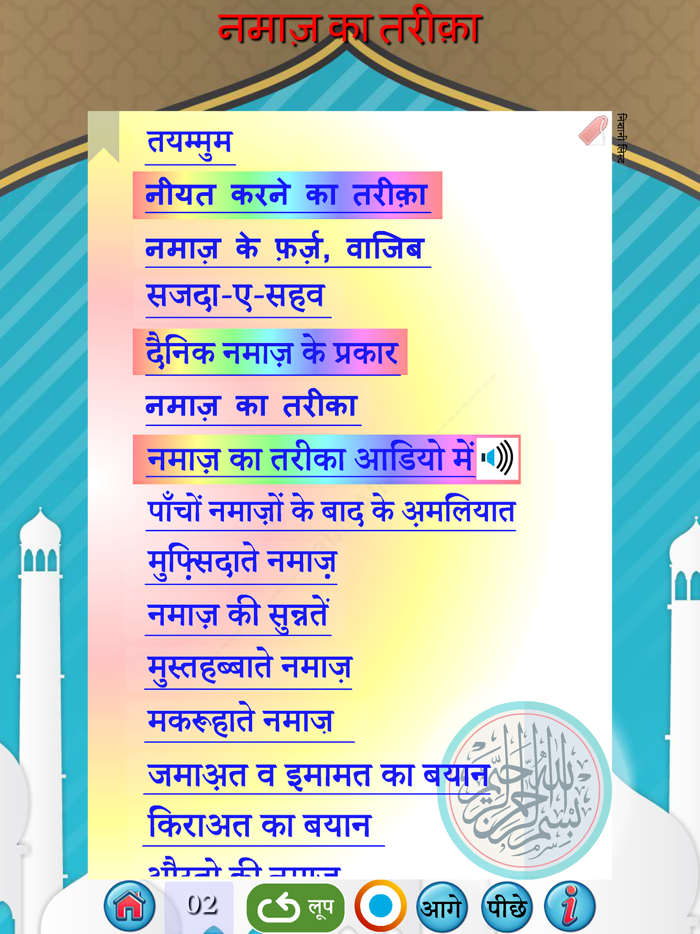 नमाज़ का तरीक़ा
निशानी लिस्ट
तयम्मुम
नीयत करने का तरीक़ा
नमाज़ के फ़र्ज़, वाजिब
सजदा-ए-सहव
दैनिक नमाज़ के प्रकार
नमाज़ का तरीका
नमाज़ का तरीका आडियो में
पाँचों नमाज़ों के बाद के अ़मलियात
मुफ़्सिदाते नमाज़
नमाज़ की सुन्नतें
मुस्तहब्बाते नमाज़
मकरूहाते नमाज़
जमाअ़त व इमामत का बयान
किराअत का बयान
بسم الله الرحمن الرحيم
02
लूप
आगे
पीछे
i